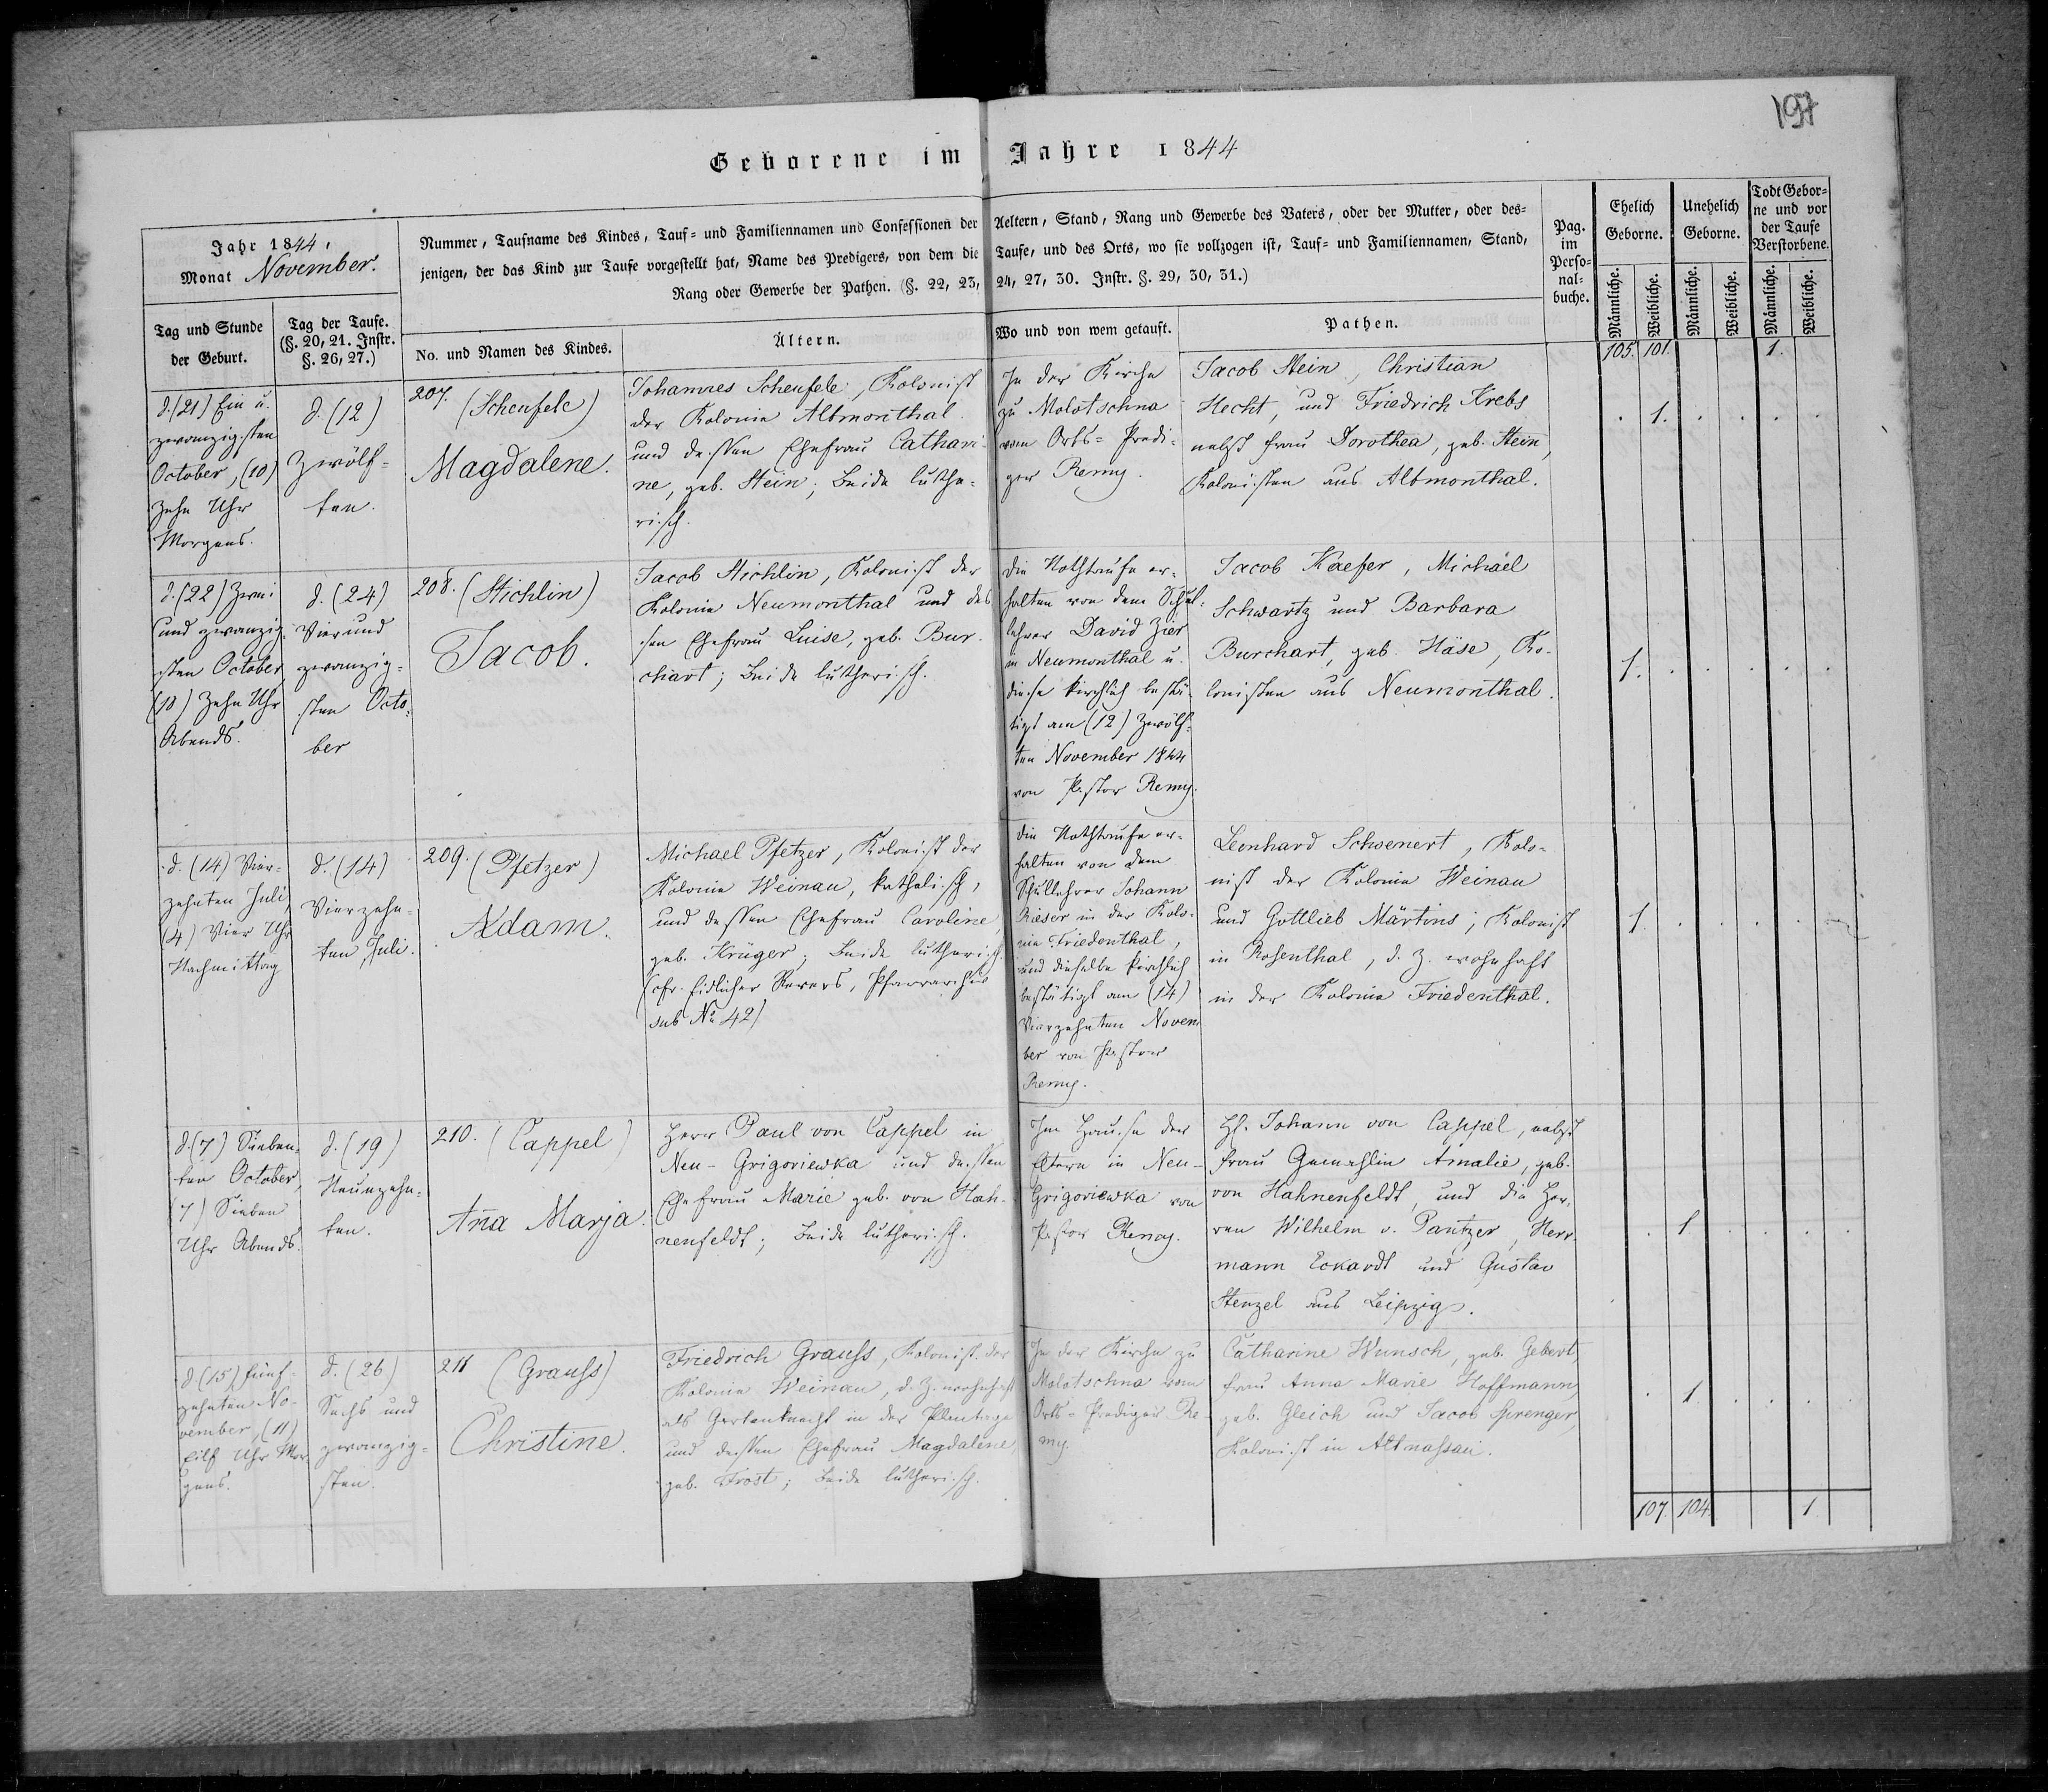 197
Geborene im Jahre 1844
Jahr 1844,
Monat November.
Nummer, Taufname des Kindes, Tauf- und Familiennamen und Confessionen der Aeltern, Stand, Rang und Gewerbe des Vaters, oder der Mutter, oder des-
jenigen, der das Kind zur Taufe vorgestellt hat, Name des Predigers, von dem die Taufe, und des Orts, wo sie vollzogen ist, Tauf- und Familiennamen, Stand,
Rang oder Gewerbe der Pathen. (§. 22, 23, 24, 27, 30. Instr. §. 29, 30, 31.)
Pag.
im
Perso-
nal-
buche.
Ehelich
Geborne.
Unehelich
Geborne.
Todt Gebor-
ne und vor
der Taufe
Verstorbene.
Tag und Stunde
der Geburt.
Tag der Taufe.
(§. 20, 21. Instr.
§. 26, 27.)
No. und Namen des Kindes.
Ältern.
Wo und von wem getauft.
Pathen.
Männliche.
Weibliche.
Männliche.
Weibliche.
Männliche.
Weibliche.
105. 101. 1.
d. (21) Ein u.
zwanzigsten
October, (10)
Zehn Uhr
Morgens.
d. (12)
Zwölf-
ten.
207. (Scheufele)
Magdalene.
Johannes Scheufele, Kolonist
der Kolonie Altmonthal
und dessen Ehefrau Cathari-
ne, geb. Stein; Beide luthe-
risch.
In der Kirche
zu Molotschna
vom Orts-Predi-
ger Remy.
Jacob Stein, Christian
Hecht, und Friedrich Krebs
nebst Frau Dorothea, geb. Stein,
Kolonisten aus Altmonthal.
. 1. . . . .
d. (22) Zwei
und zwanzig-
sten October
(10) Zehn Uhr
Abends.
d. (24)
Vier und
zwanzig-
sten Octo-
ber
208. (Stichlin)
Jacob.
Jacob Stichlin, Kolonist der
Kolonie Neumonthal und des-
sen Ehefrau Luise, geb. Bur-
chart; Beide lutherisch.
Die Nothtaufe er-
halten von dem Schul-
lehrer David Zier
in Neumonthal u.
diese kirchlich bestä-
tigt am (12) Zwölf-
ten November 1844
von Pastor Remy.
Jacob Kaefer, Michäel
Schwartz und Barbara
Burchart, geb. Häse, Ko-
lonisten aus Neumonthal.
1. . . . . .
d. (14) Vier-
zehnten Juli,
(4) Vier Uhr
Nachmittag
d. (14)
Vierzehn-
ten Juli.
209. (Pfetzer)
Adam.
Michael Pfetzer, Kolonist der
Kolonie Weinau, katholisch,
und dessen Ehefrau Caroline,
geb. Krüger; Beide lutherisch.
(cfr. Eidlicher Revers, Pfarrarchiv
sub No 42)
Die Nothtaufe er-
halten von dem
Schullehrer Johann
Rieser in der Kolo-
nie Friedenthal,
und dieselbe kirchlich
bestätigt am (14)
Vierzehnten Novem
ber von Pastor
Remy.
Leonhard Schoenert, Kolo-
nist der Kolonie Weinau
und Gottlieb Märtins, Kolonist
in Rosenthal, d. Z. wohnhaft
in der Kolonie Friedenthal.
1. . . . .
d. (7) Sieben-
ten October,
(7) Sieben
Uhr Abends.
d. (19)
Neunzehn-
ten.
210. (Cappel)
Aña Marja.
Herr Paul von Cappel in
Neu-Grigoriewka und dessen
Ehefrau Marie geb. von Hah-
nenfeldt; Beide lutherisch.
Im Hause der
Eltern in Neu-
Grigoriewka von
Pastor Remy.
H. Johann von Cappel, nebst
Frau Gemahlin Amalie, geb.
von Hahnenfeldt, und die Her-
ren Wilhelm v. Pantzer, Herr-
mann Eckardt und Gustav
Stenzel aus Leipzig.
. 1 . . . .
d. (15) Fünf-
zehnten No-
vember, (11)
Eilf Uhr Mor-
gens.
d. (26)
Sechs und
zwanzig-
sten.
211 (Grauss)
Christine.
Friedrich Grauss, Kolonist der
Kolonie Weinau, d. Z. wohnhaft
als Gartenknecht in der Plantage
und dessen Ehefrau Magdalene,
geb. Frost; Beide lutherisch.
In der Kirche zu
Molotschna vom
Orts-Prediger Re-
my.
Catharine Wunsch, geb. Gebert,
Frau Anna Marie Hoffmann,
geb. Gleich und Jacob Sprenger,
Kolonist in Altnassau.
. 1. . . . .
107. 104. 1